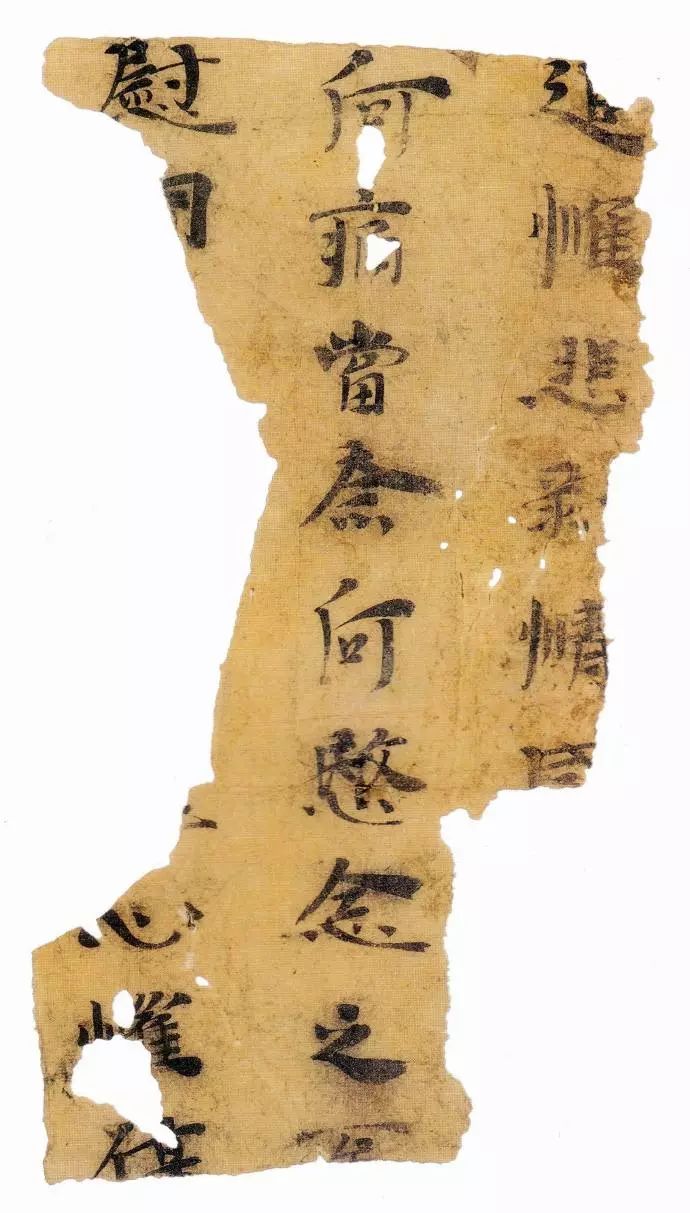 追惟悲剝情
何痛當奈何愍念之
慰心